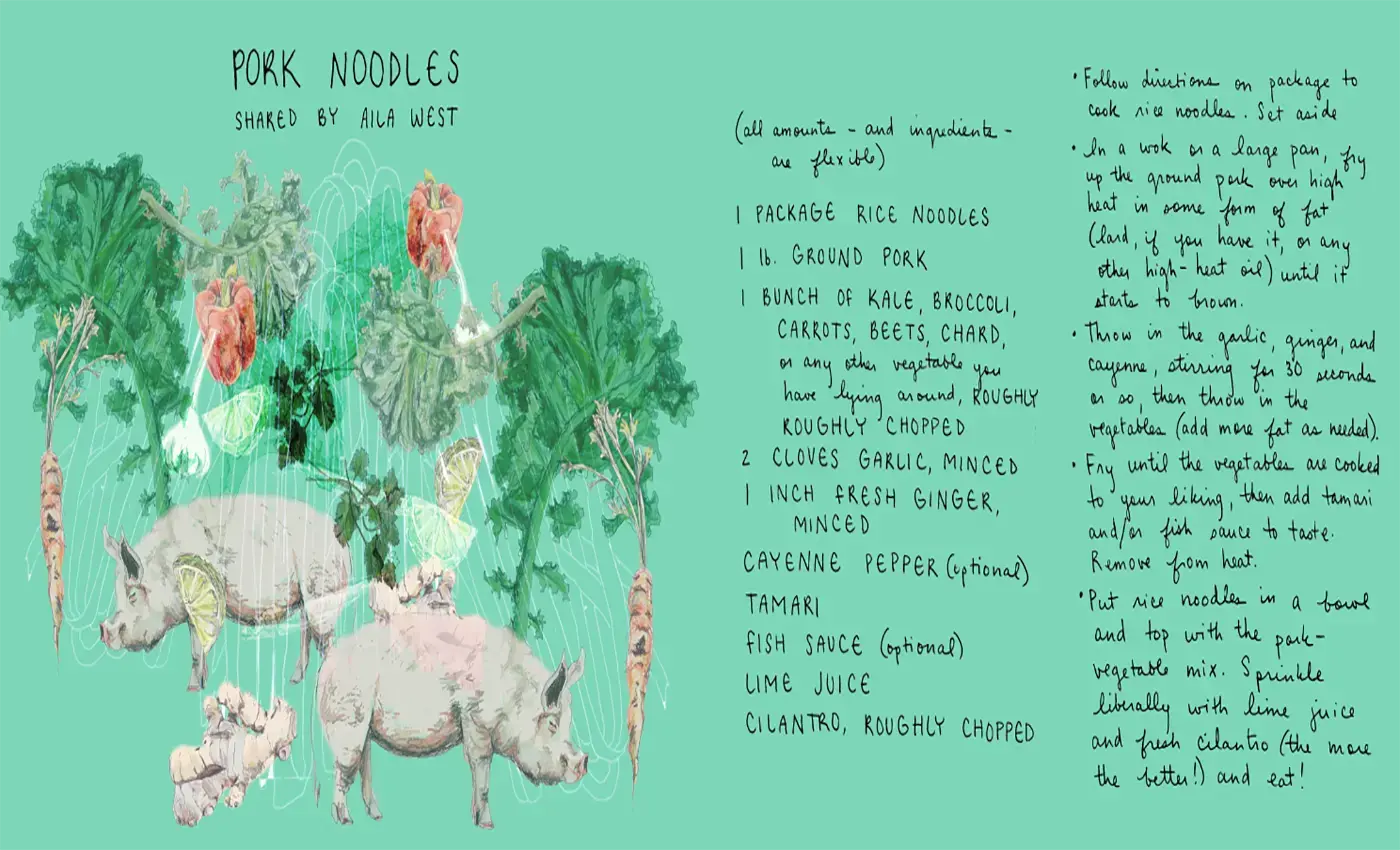 PORK NOODLES
SHARED BY AILA WEST
(all amounts - and ingredients -
are flexible)
1 PACKAGE RICE NOODLES
1 lb. GROUND PORK
1 BUNCH OF KALE, BROCCOLI,
CARROTS, BEETS, CHARD,
or any other vegetable you
have lying around, ROUGHLY
ROUGHLY CHOPPED
2 CLOVES GARLIC, MINCED
1 INCH FRESH GINGER,
MINCED
CAYENNE PEPPER (optional)
TAMARI
FISH SAUCE (optional)
LIME JUICE
CILANTRO, ROUGHLY CHOPPED
• Follow directions on package to
cook rice noodles. Set aside
• In a wok or a large pan, fry
up the ground pork over high
heat in some form of fat
(lard, if you have it, or any
other high-heat oil) until it
starts to brown.
• Throw in the garlic, ginger, and
cayenne, stirring for 30 seconds
or so, then throw in the
vegetables (add more fat as needed).
• Fry until the vegetables are cooked
to your liking, then add tamari
and/or fish sauce to taste.
Remove from heat.
• Put rice noodles in a bowl
and top with the pork-
vegetable mix. Sprinkle
liberally with lime juice
and fresh cilantro (the more
the better!) and eat!